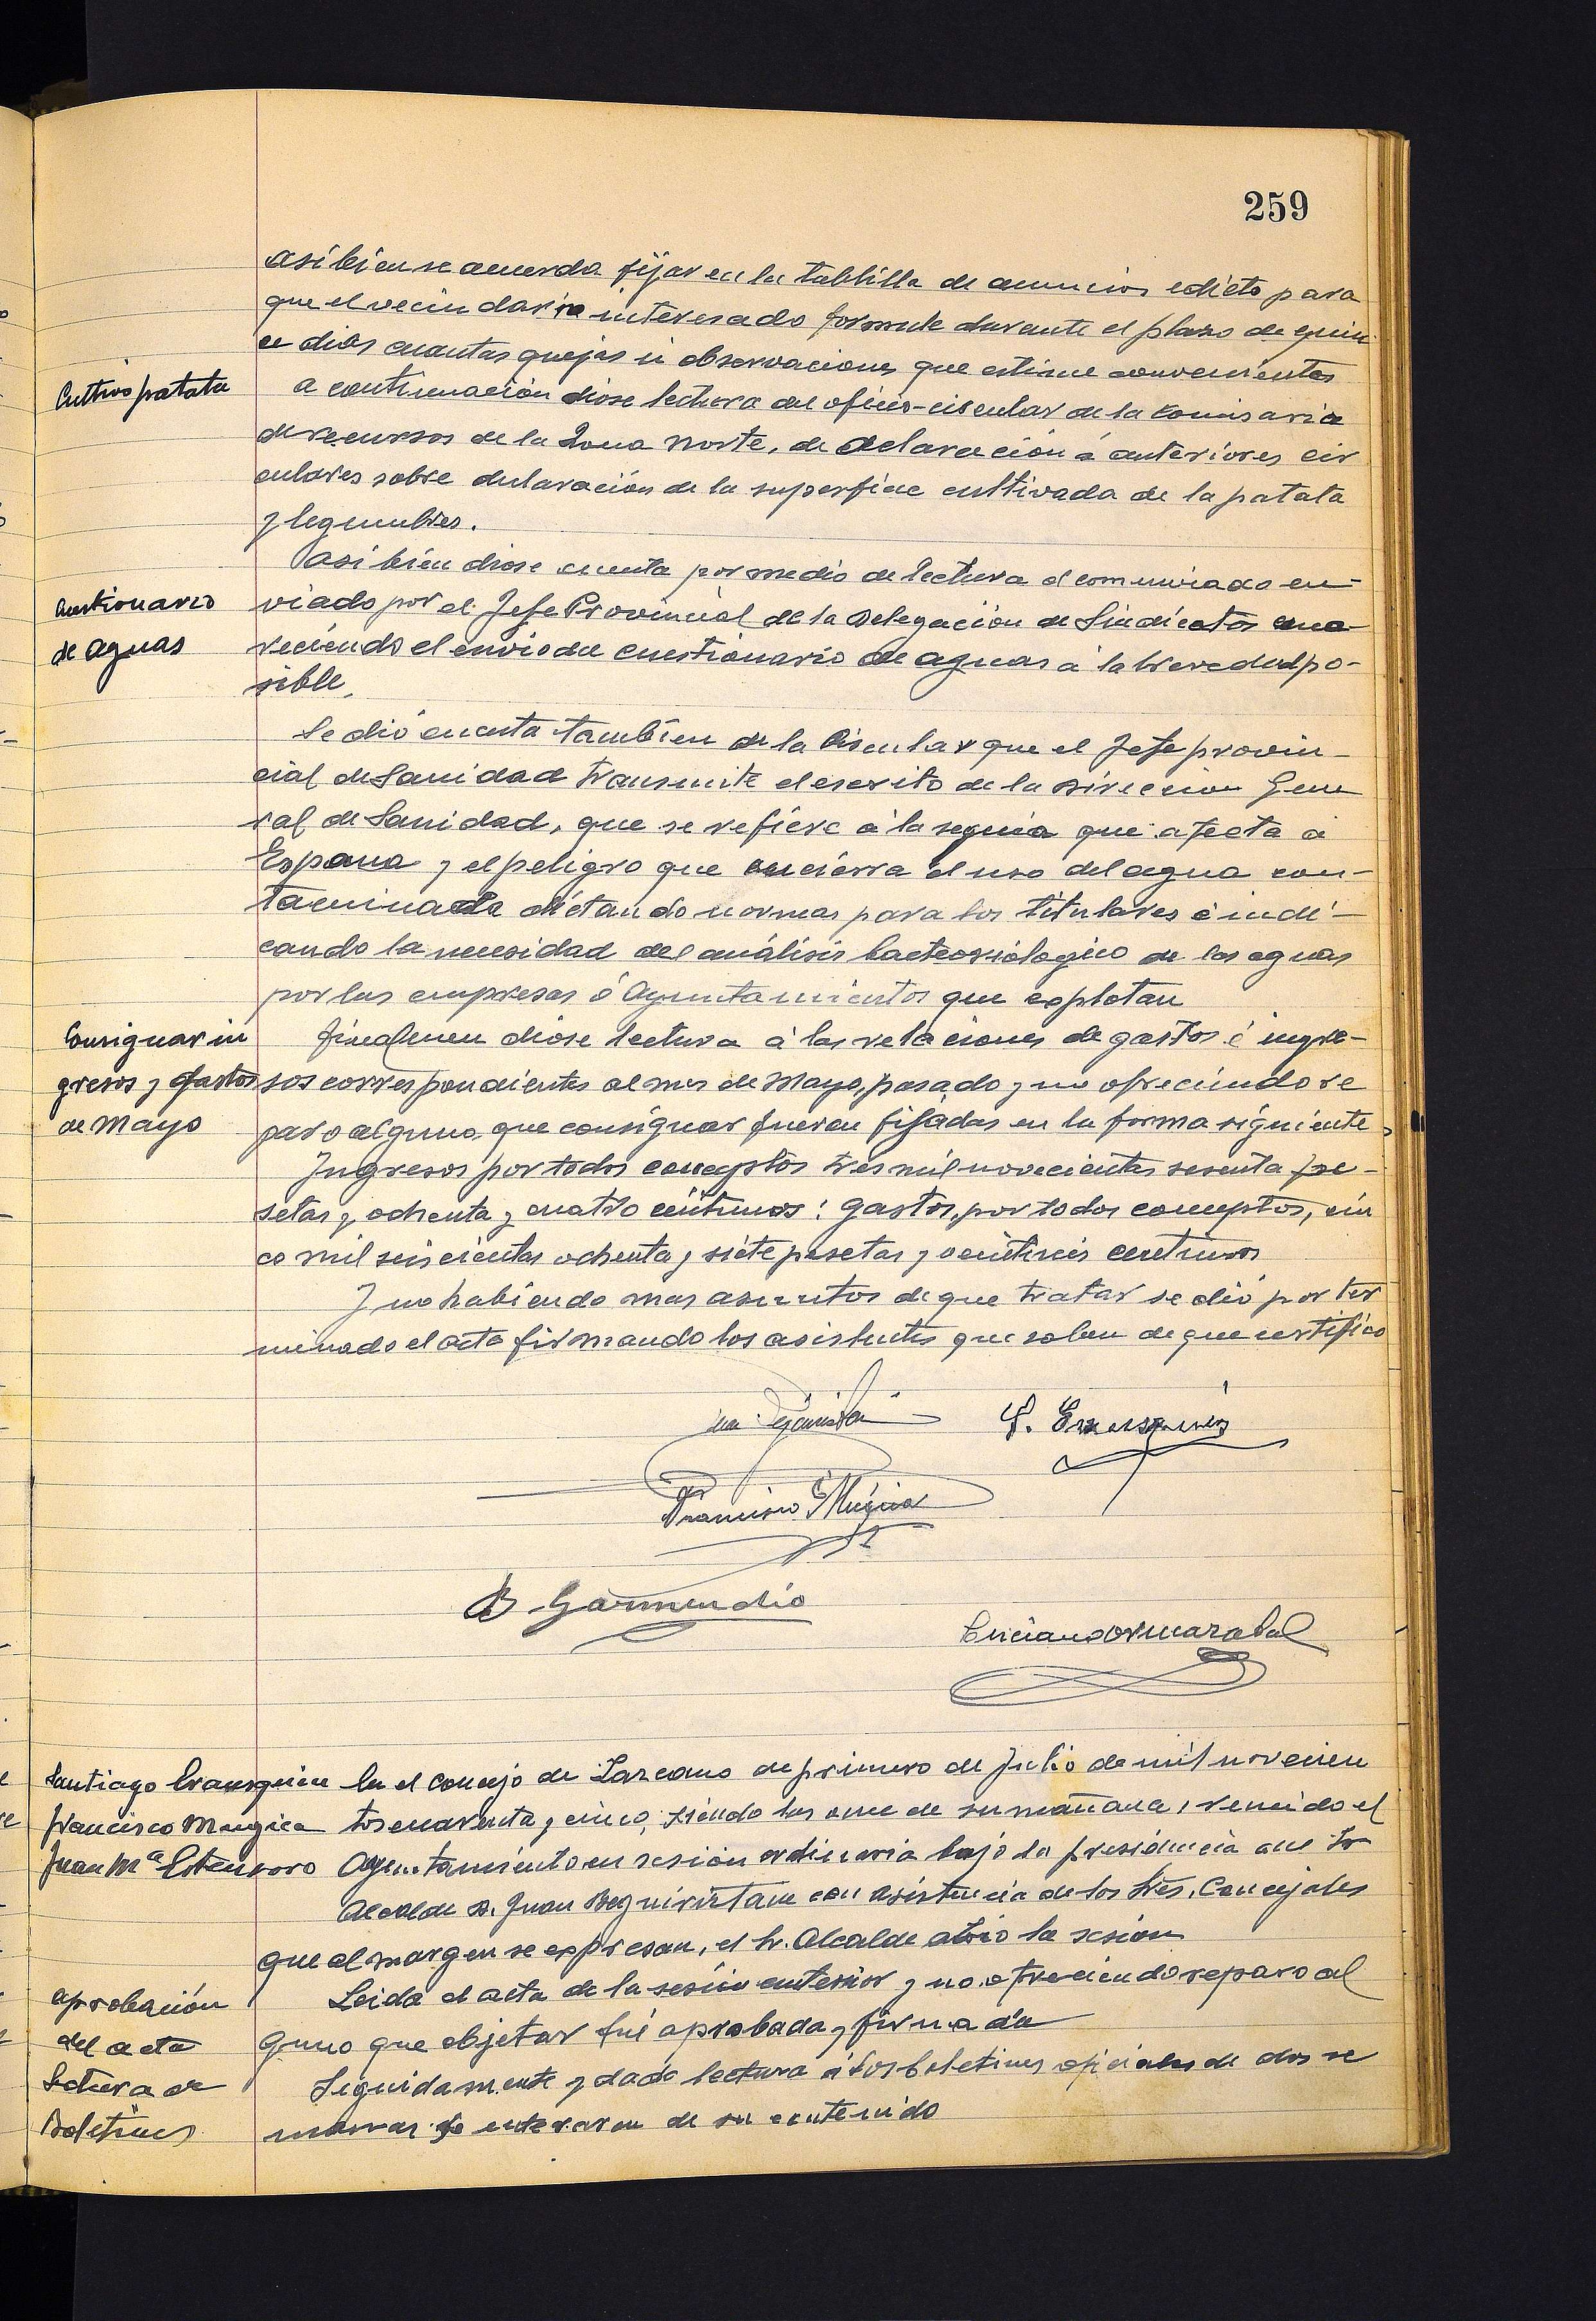 259
asi bien se acuerda fijar en la tablilla de anuncios edicto para
que el vecindario interesado formule durante el plazo de quin
ce dias cuantas quejas ú observaciones que estime convenientes
Cultivo patata
a continuación diose lectura del oficio-circular de la Comisaria
de recursos de la Zona Norte, de aclaración á anteriores cir
culares sobre declaración de la superficie cultivada de la patata
y legumbres.
Asi bien diose cuenta por medio de lectura el comunicado en-
Cuestionario
de aguas
viado por el Jefe Provincial de la Delegación de Sindicatos enca-
reciendo el envio del cuestionario de aguas á la brevedad po-
sible.
Se dió cuenta tambien de la Circular que el Jefe provin-
cial de Sanidad transmite el escrito de la Dirección Gene
ral de Sanidad, que se refiere á la sequia que afecta á
España y el peligro que encierra el uso del agua con-
taminada dictando normas para los titulares é indi-
cando la necesidad del análisis bacteoriologico de las aguas
por las empresas ó Ayuntamientos que explotan
Consignar in
gresos y gastos
de Mayo
finalmen diose lectura á las relaciones de gastos é ingre-
sos correspondientes al mes de Mayo, pasado y no ofreciendo re
paro alguno que consignar fueron fijadas en la forma siguiente
Ingresos por todos conceptos tres mil novecientas sesenta pe-
setas y ochenta y cuatro céntimos: gastos, por todos conceptos, cin
co mil seiscientas ochenta y siete pesetas y veintiseis centimos
Y no habiendo mas asuntos de que tratar se dió por ter
minado el acto firmando los asistentes que saben de que certifico
Francisco Múgica
B Garmendia
Luciano Ormazabal
Santiago Erausquin
Francisco Mugica
Juan Mª Estensoro
En el concejo de Lazcano de primero de Julio de mil novecien
tos cuarenta y cinco, siendo las once de su mañana, reunido el
Ayuntamiento en sesión ordinaria bajo la presidencia del Sr
Alcalde D. Juan Beguiristain con asistencia de los Sres. Concejales
que al margen se expresan, el Sr. Alcalde abrio la sesión
aprobación
del acta
Leida el acta de la sesión anterior y no ofreciendo reparo al
guno que objetar fué aprobada y firmada
Lectura de
Boletines
Seguidamente y dada lectura á los boletines oficiales de dos se
manas se enteraron de su contenido